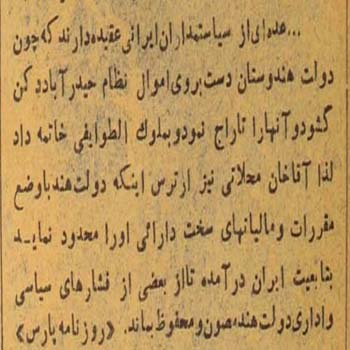 ...عده‌ای از سیاستمداران ایرانی عقیده دارند که چون
دولت هندوستان دست بروی اموال نظام حیدرآباد دکن
گشود و آنها را تاراج نمود و بملوك الطوایفی خاتمه داد
لذا آقاخان محلاتی نیز از ترس اینکه دولت هند با وضع
مقررات و مالیاتهای سخت دارائی اورا محدود نماید
بتابعیت ایران در آمده تا از بعضی از فشارهای سیاسی
و اداری دولت هند مصون و محفوظ بماند. «روزنامه پارس»